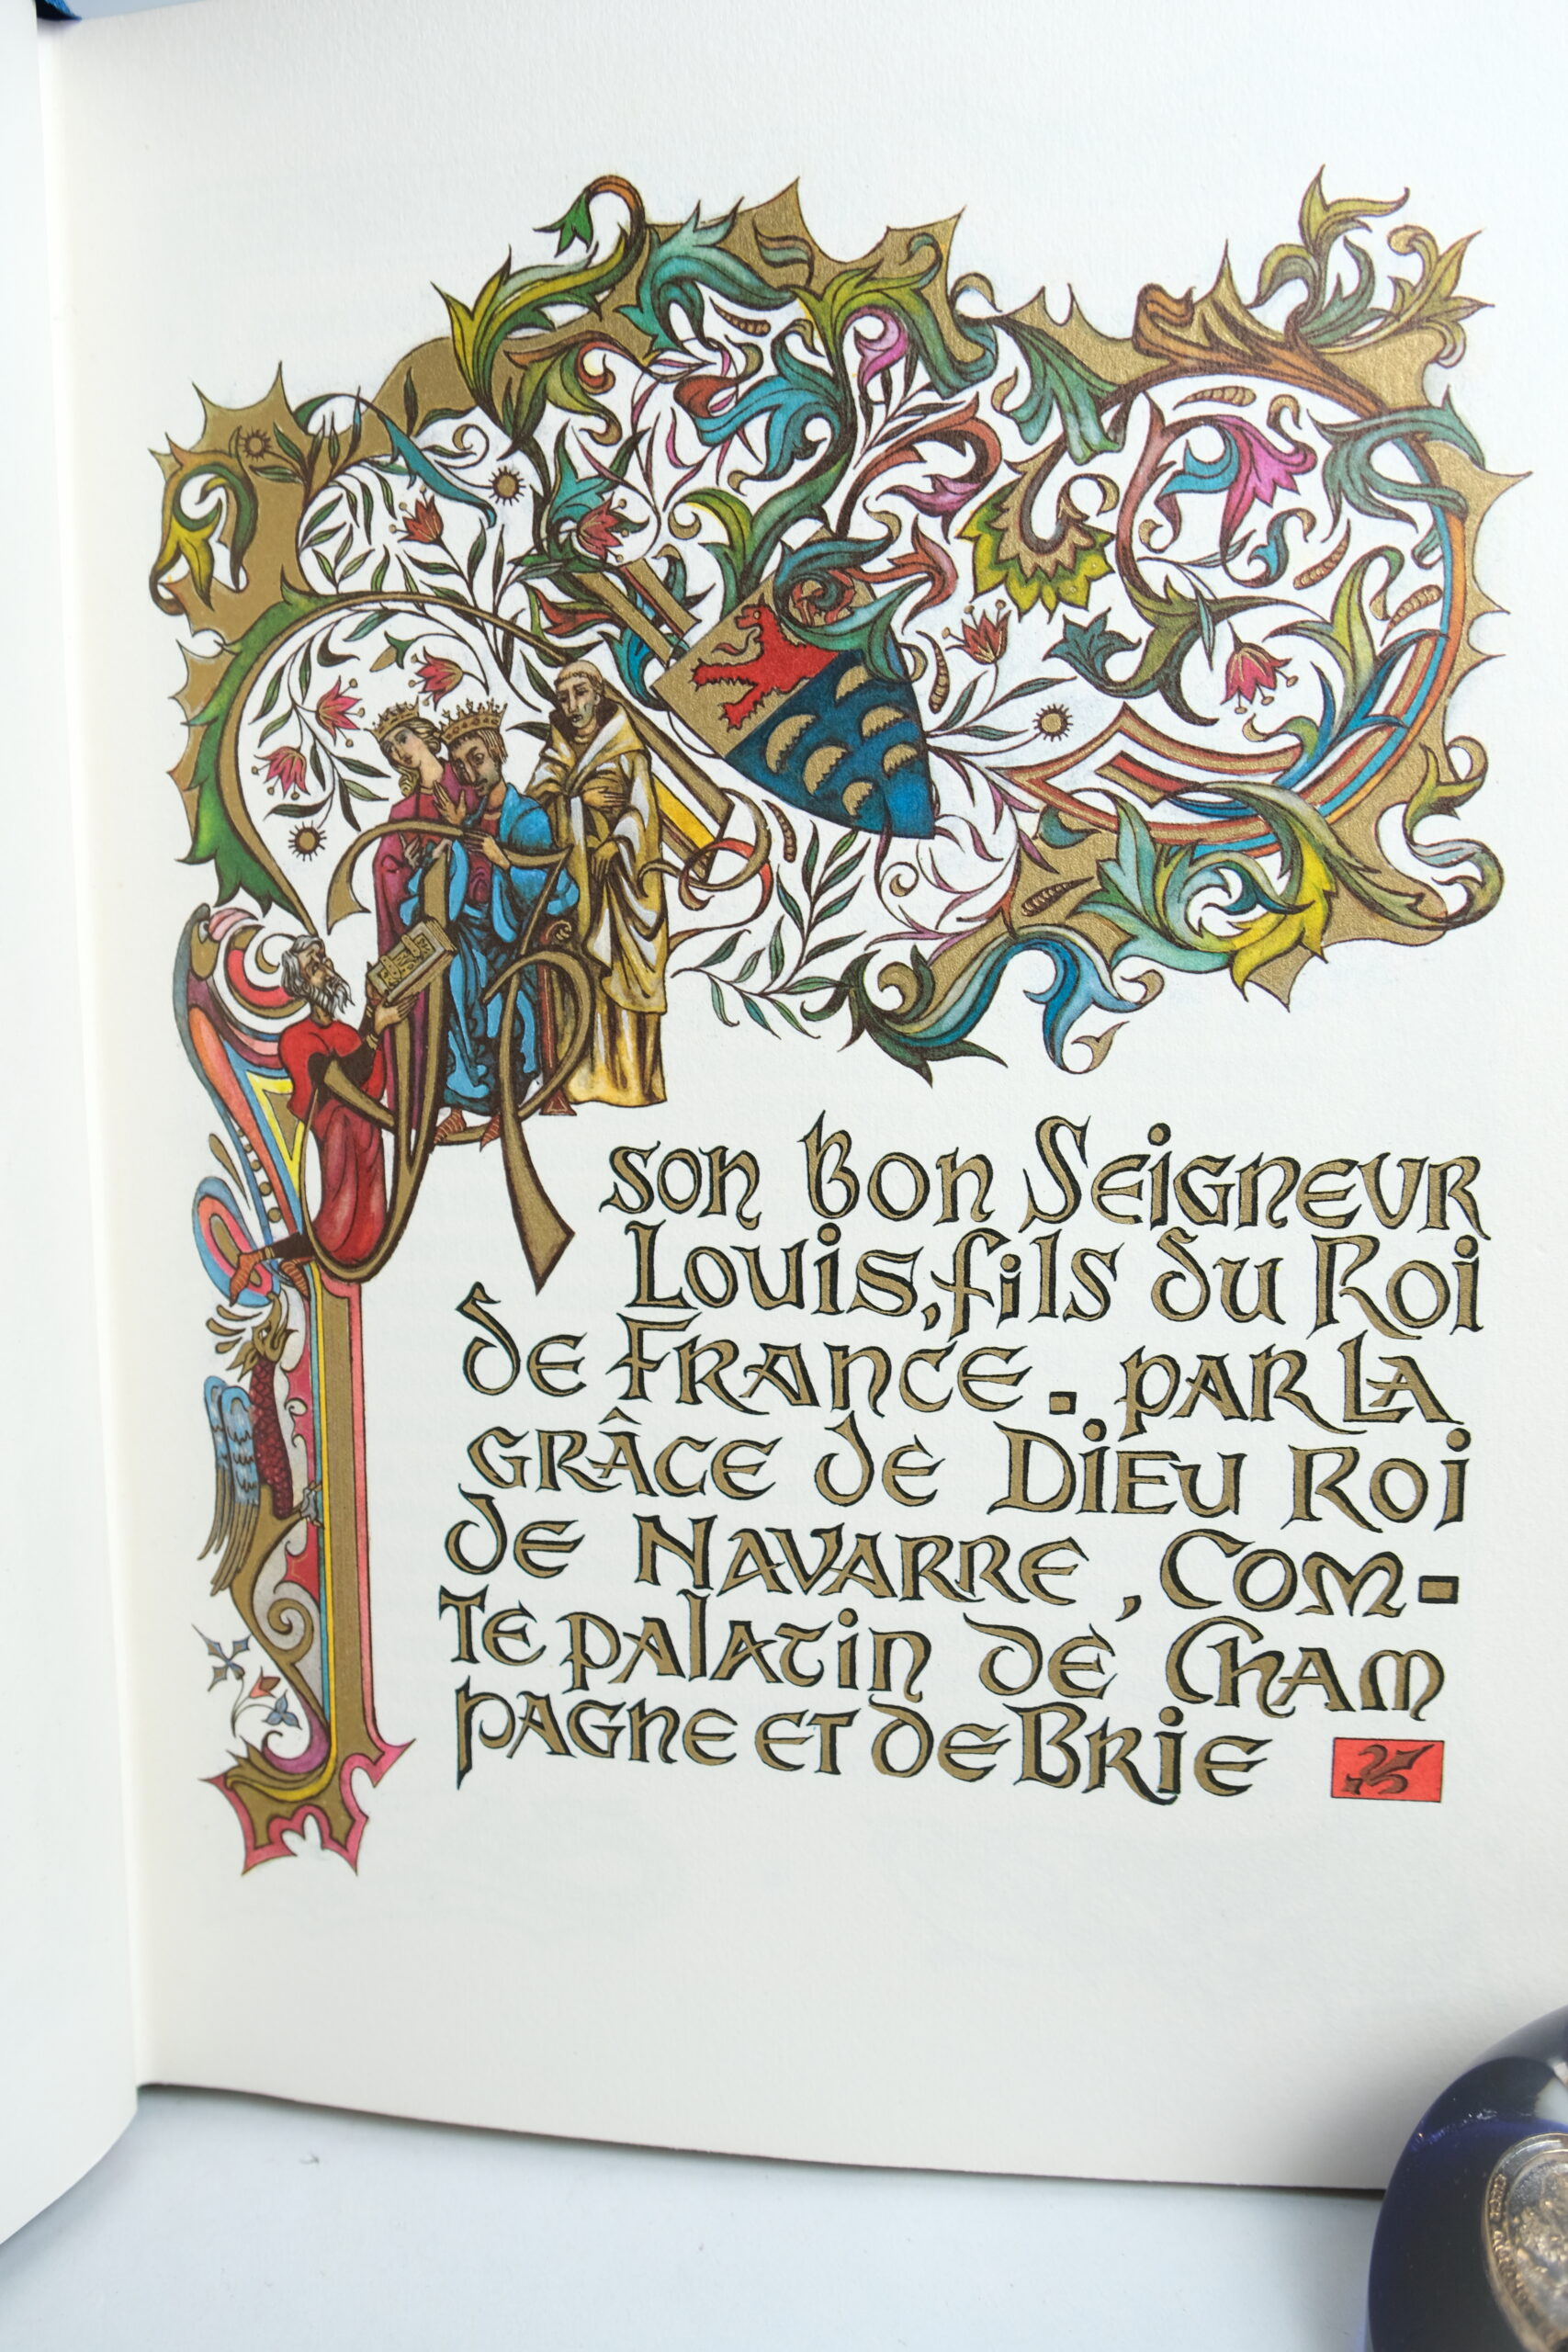 A
son bon Seigneur
Louis, fils du Roi
de France. par la
grâce de Dieu Roi
de Navarre, Com-
te palatin de Cham
pagne et de Brie